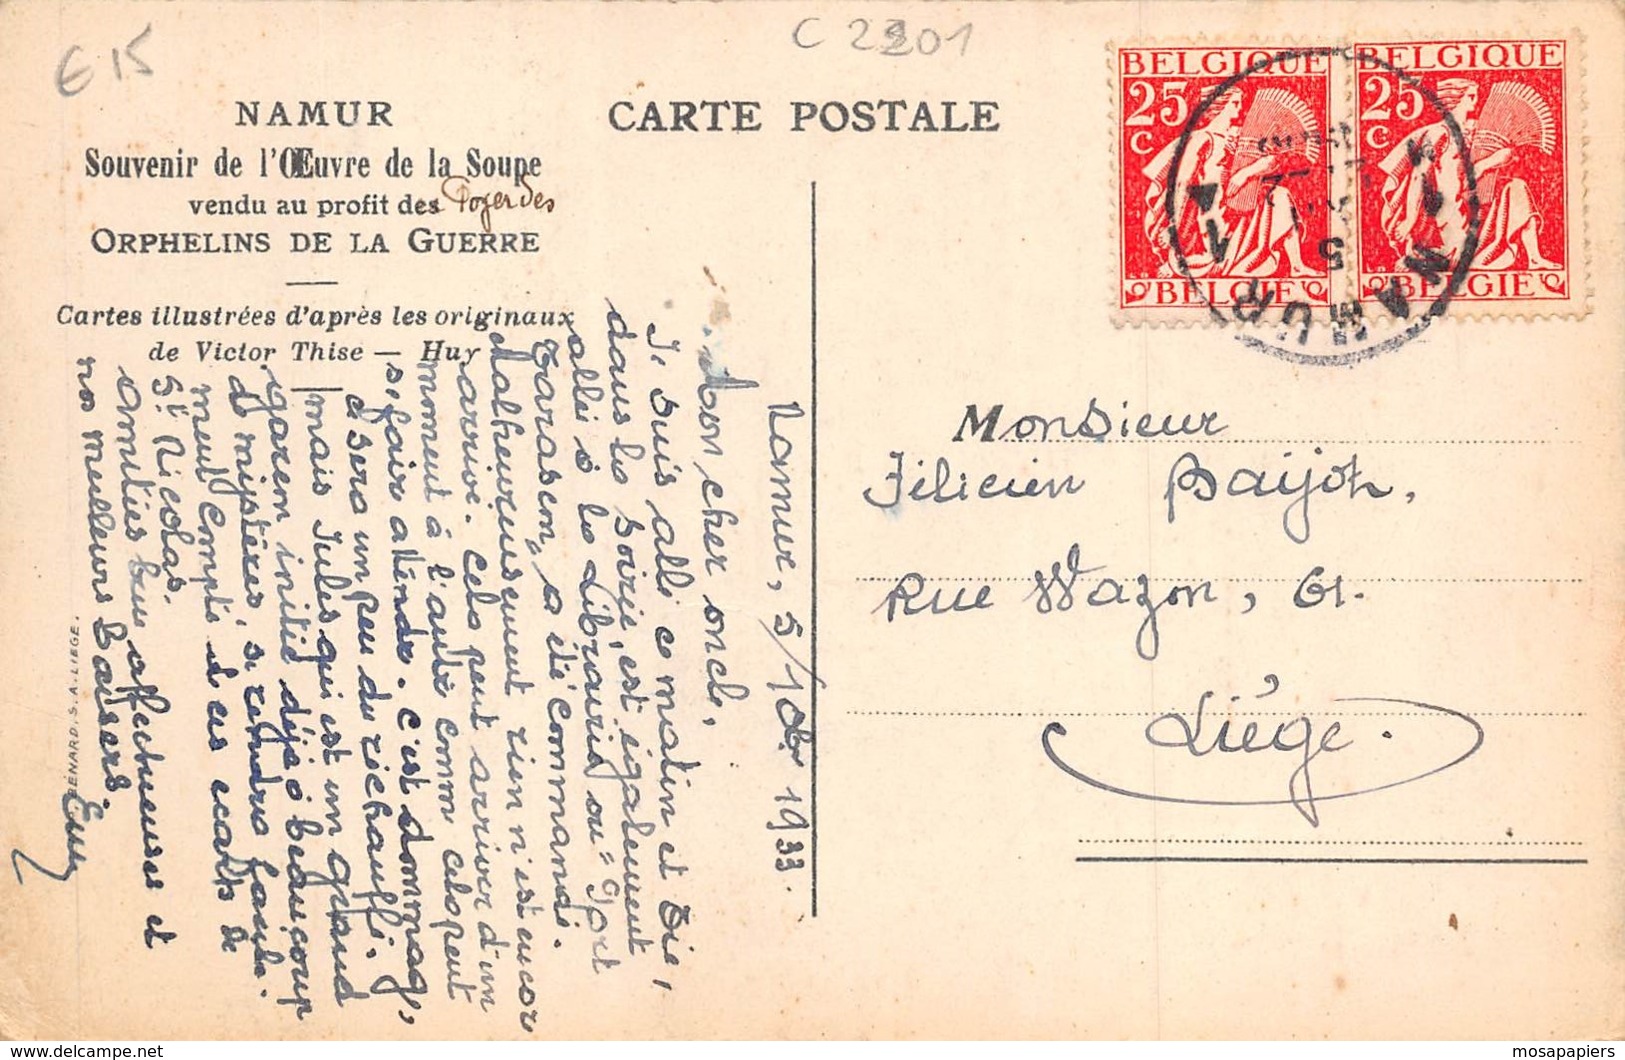 € 15
C 2201
NAMUR
Souvenir de l'Œuvre de la Soupe
vendu au profit des Foyer des
ORPHELINS DE LA GUERRE
Cartes illustrées d'après les originaux
de Victor Thise — Huy
CARTE POSTALE
BELGIQUE
25
C
BELGIE
BELGIQUE
25
C
BELGIE
NAMUR
1
5
Monsieur
Félicien Baijot,
Rue Wazon, 61.
Liége.
Namur, 5/10/1933.
Mon cher oncle,
Je suis allé ce matin et Zie,
dans la soirée, est également
allée à la Librairie où "Sport
Tarascon" a été commandé.
Malheureusement rien n'est encor
arrivé. Cela peut arriver d'un
moment à l'autre comme cela peut
se faire attendre. C'est dommage,
ce sera un peu du réchauffé.
mais Jules qui est un grand
garçon initié déjà à beaucoup
de mystères, se rendra facile-
ment compte de ces écarts de
St Nicolas.
Amitiés bien affectueuses et
nos meilleurs baisers.
BÉNARD, S.A. LIÉGE.
mosapapiers